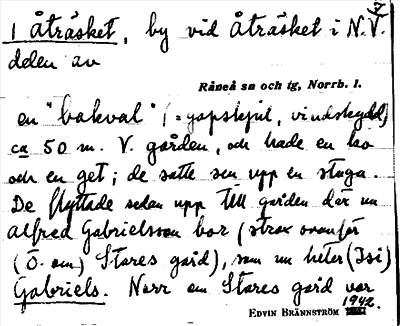 1 Åträsket, by vid Åträsket i N.V.
delen av
Råneå sn och tg, Norrb. l.
en "bakval" (= gapskjul, vindskydd)
ca 50 m. V. gården, och hade en ko
och en get; de satte sen upp en stuga.
De flyttade sedan upp till gården där nu
Alfred Gabrielsson bor (strax ovanför
(Ö. om) Stares gård), som nu heter (Isi)
Gabriels. Norr om Stares gård var
EDVIN BRÄNNSTRÖM 1942.